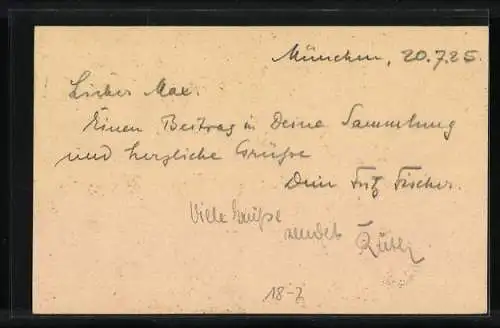 München, 20.7.25.
Lieber Max.
Einen Beitrag in Deine Sammlung
und herzliche Grüße
Dein Fritz Fischer.
Viele Grüße
sendet
18-3